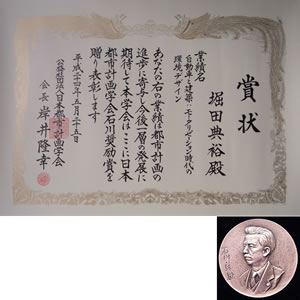 賞状
堀田典裕殿
業績名
自動車と建築：モータリゼーション時代の
環境デザイン
あなたの右の業績は都市計画の
進歩に寄与し今後一層の発展に
期待して本学会はここに日本
都市計画学会石川奨励賞を
贈り表彰します
平成二十四年五月二十五日
公益社団法人日本都市計画学会
会長岸井隆幸